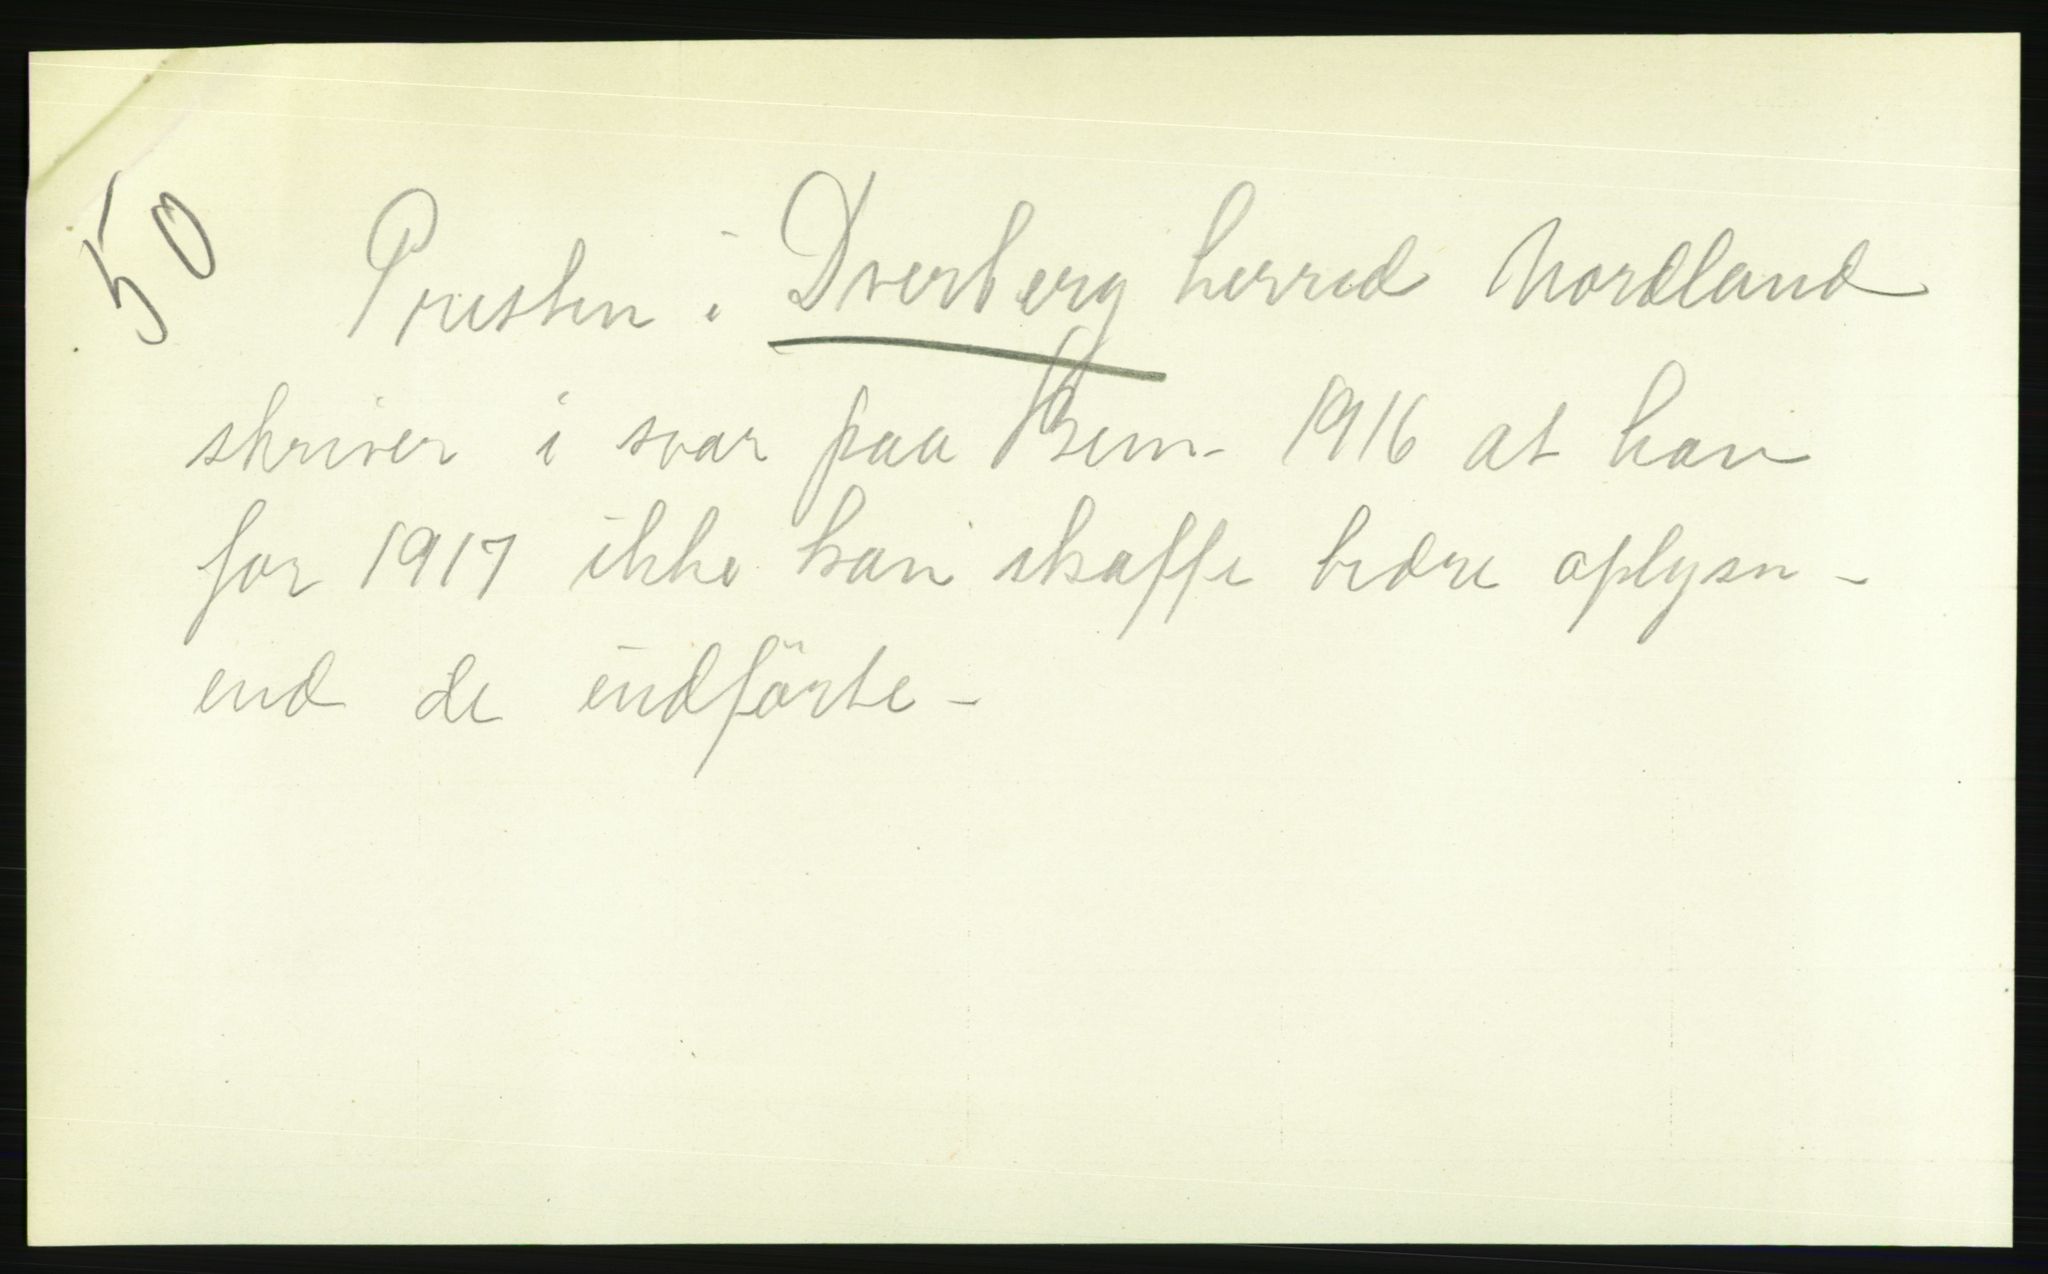 50
Presten i Dverberg herred Nordland
skriver i svar paa Bem- 1916 at han
for 1917 ikke kan skaffe bedre oplysn-
end de indförte-